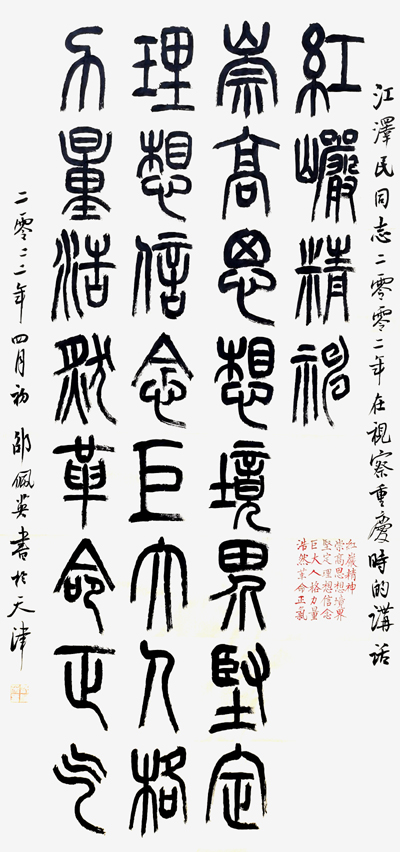 江澤民同志二零零二年在視察重慶時的講話
紅巖精神
崇高思想境界堅定
理想信念巨大人格
力量浩然革命正气
红巖精神
崇高思想境界
堅定理想信念
巨大人格力量
浩然革命正氣
二零二二年四月初 邵佩英書於天津